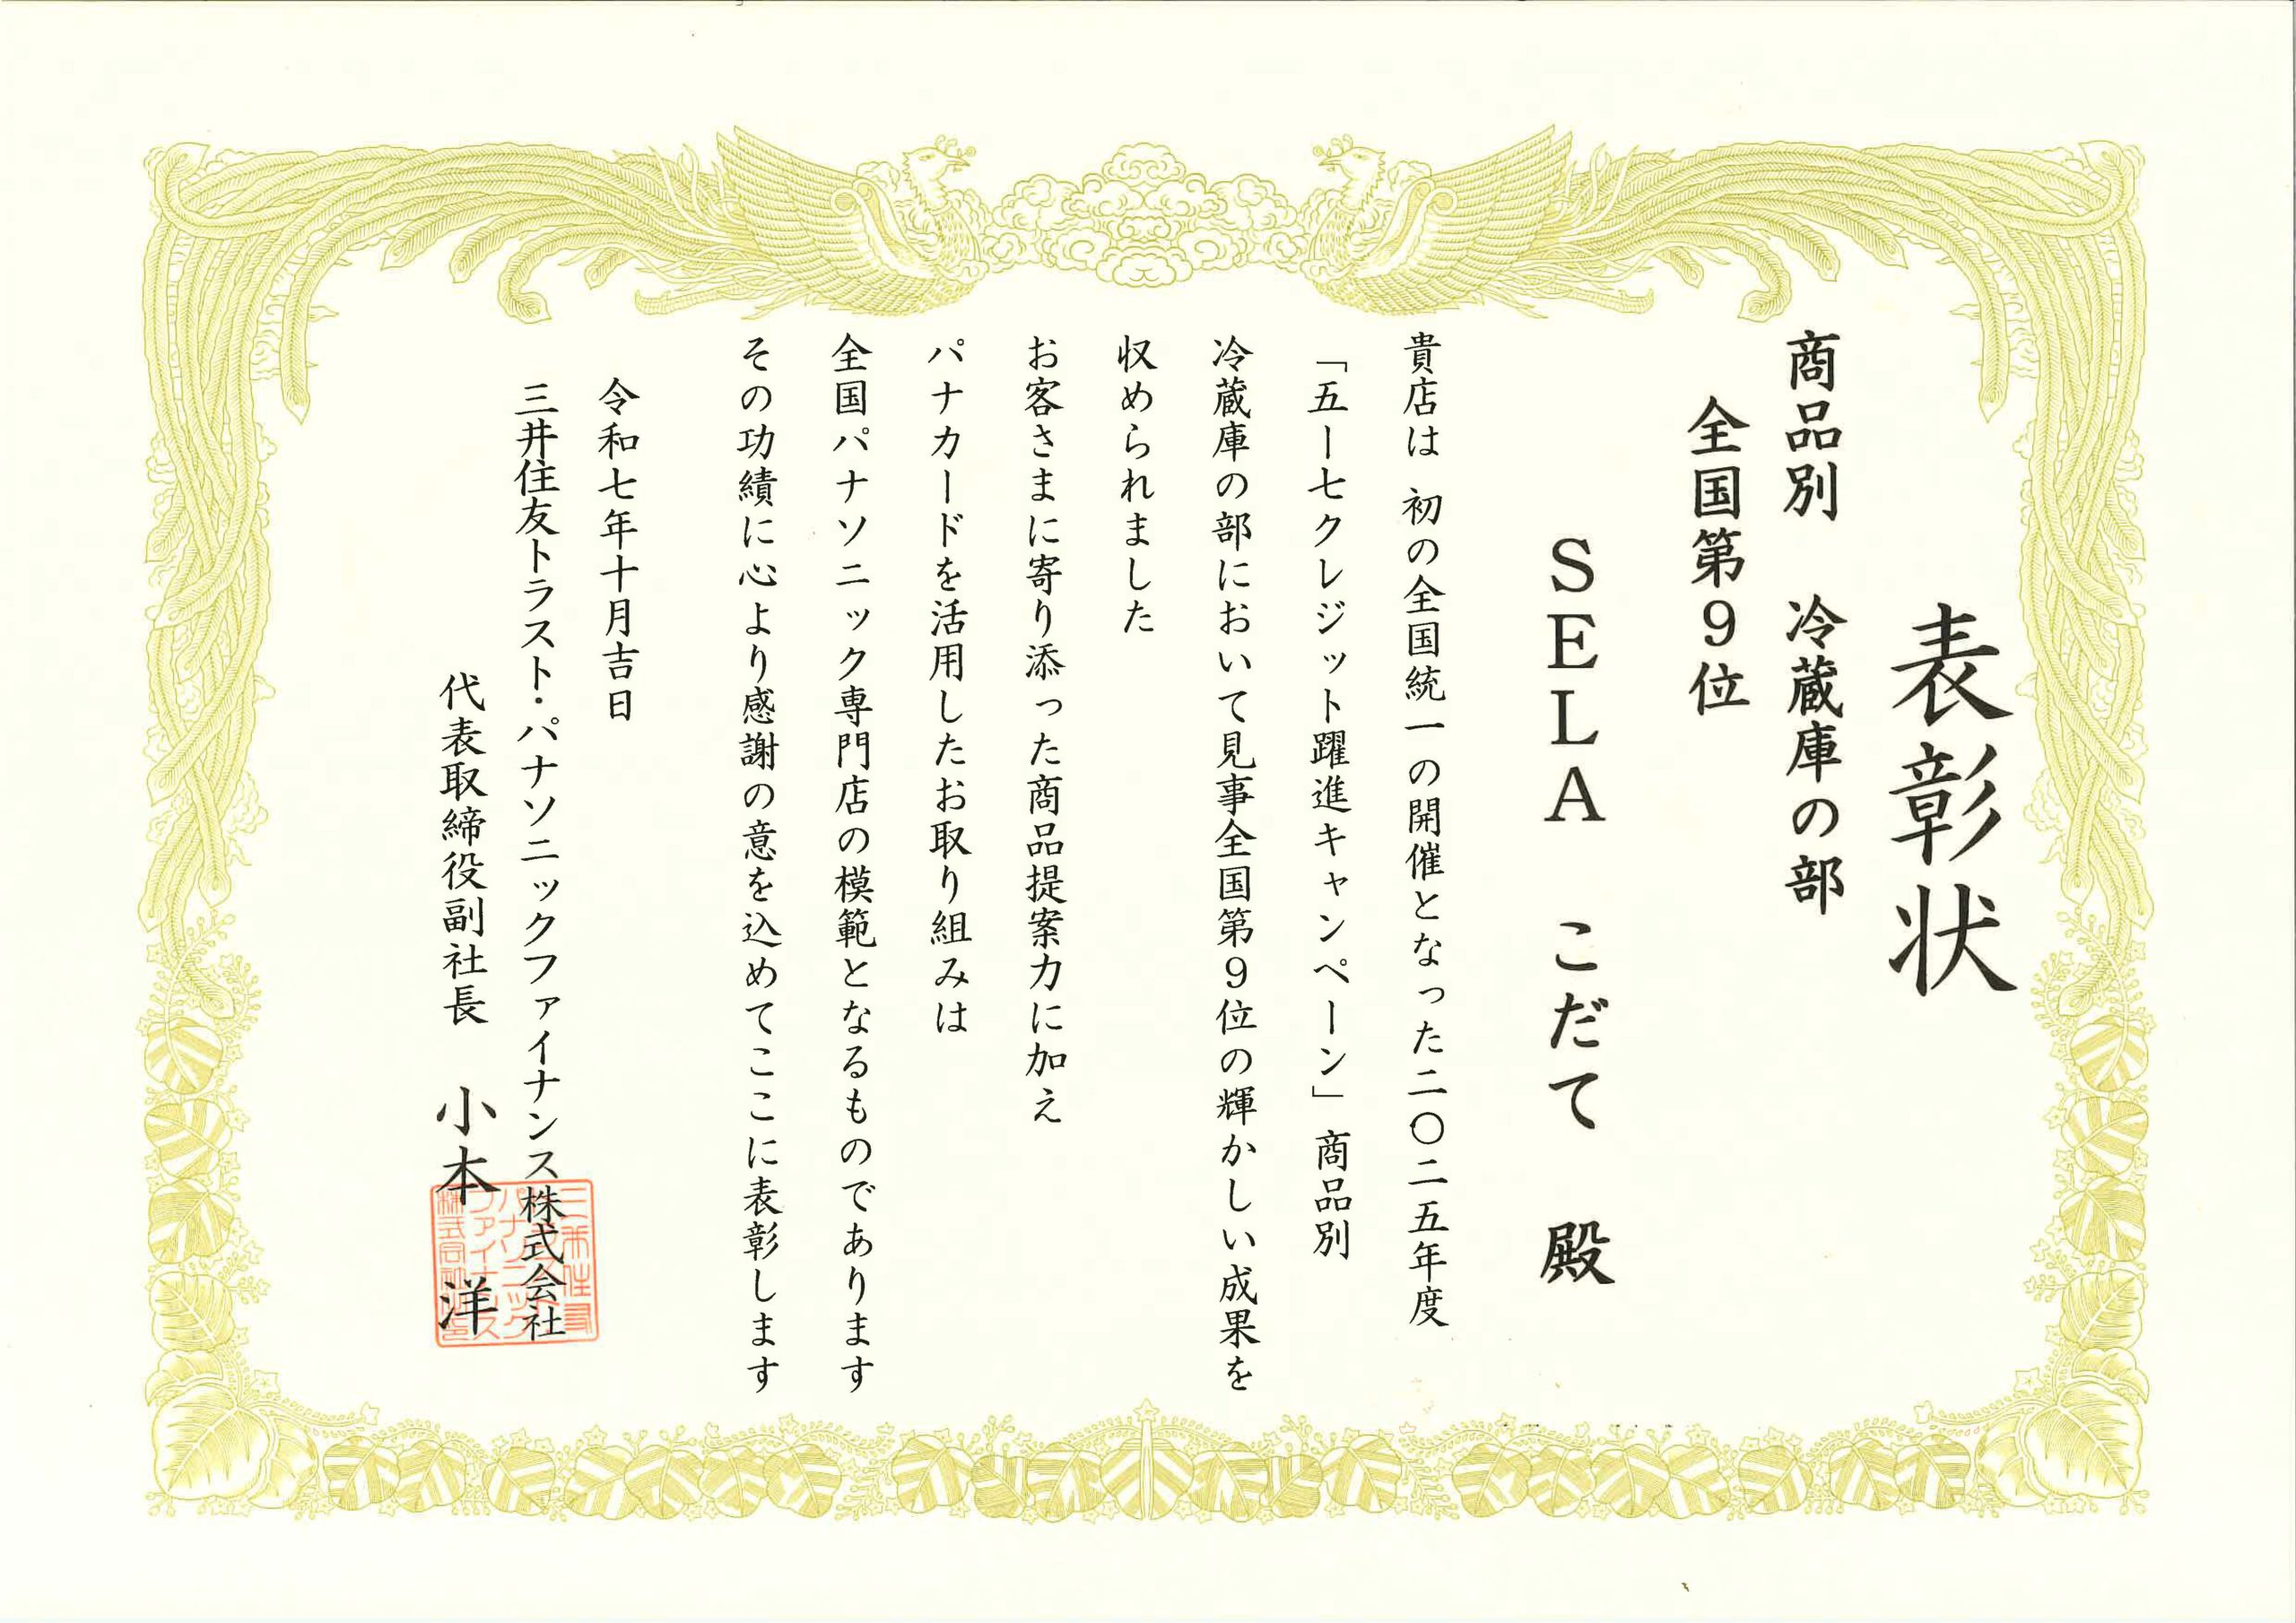 表彰状
商品別　冷蔵庫の部
全国第9位
SELA　こだて　殿
貴店は 初の全国統一の開催となった二〇二五年度
「五ー七クレジット躍進キャンペーン」商品別
冷蔵庫の部において見事全国第9位の輝かしい成果を
収められました
お客さまに寄り添った商品提案力に加え
パナカードを活用したお取り組みは
全国パナソニック専門店の模範となるものであります
その功績に心より感謝の意を込めてここに表彰します
令和七年十月吉日
三井住友トラスト・パナソニックファイナンス株式会社
代表取締役副社長　小本　洋